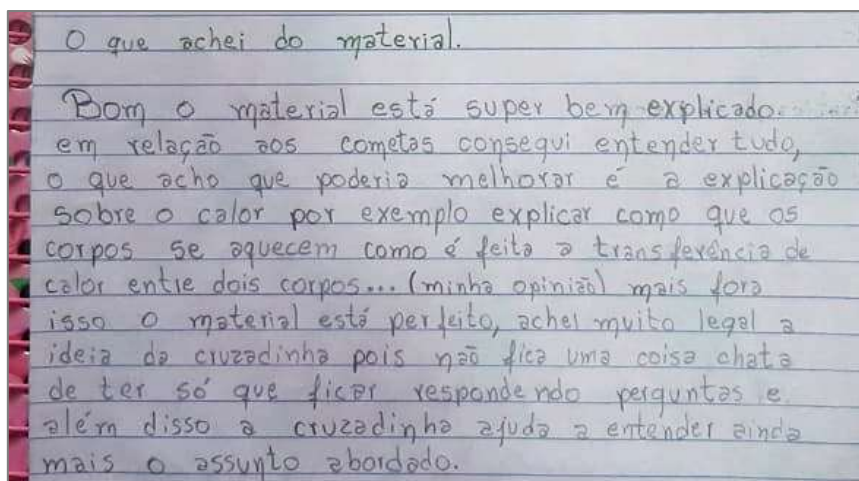 O que achei do material.
Bom o material está super bem explicado.
em relação aos cometas consegui entender tudo,
o que acho que poderia melhorar é a explicação
sobre o calor por exemplo explicar como que os
corpos se aquecem como é feita a transferência de
calor entre dois corpos... (minha opinião) mais fora
isso o material está perfeito, achei muito legal a
ideia da cruzadinha pois não fica uma coisa chata
de ter só que ficar respondendo perguntas e
além disso a cruzadinha ajuda a entender ainda
mais o assunto abordado.